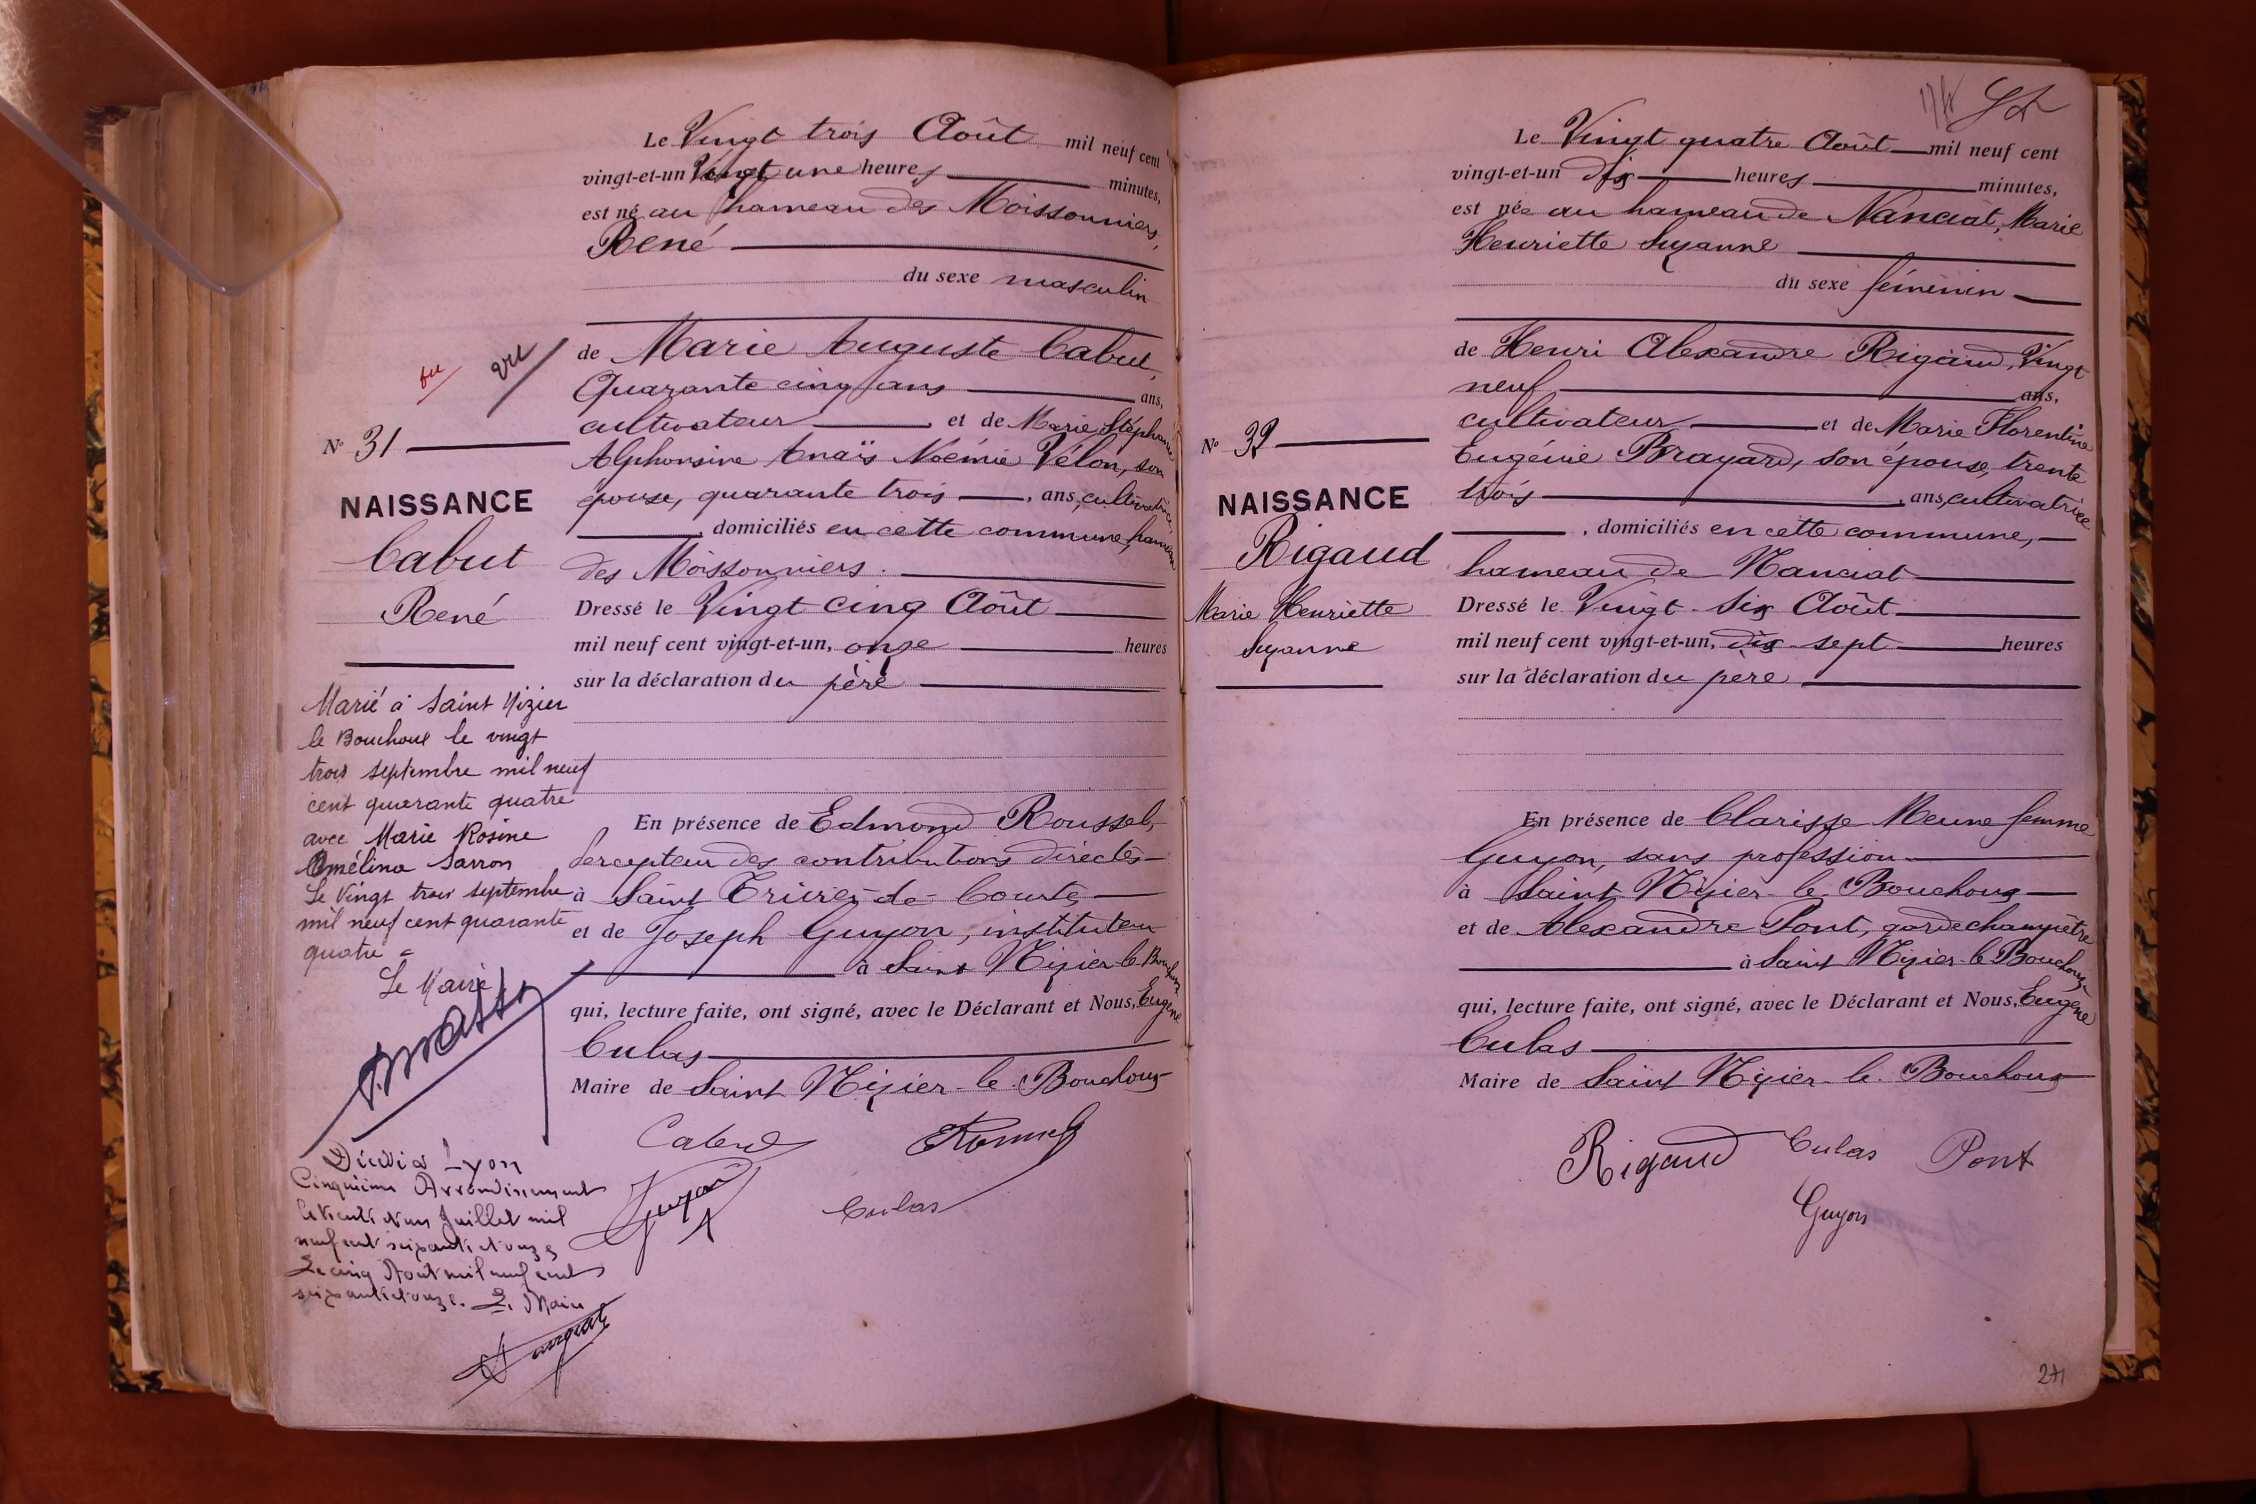 vu
vu
N° 31
NAISSANCE
Cabut
René
Marié à Saint Nizier
le Bouchoux le vingt
trois septembre mil neuf
cent quarante quatre
avec Marie Rosine
Amélina Sarron
Le Vingt trois septembre
mil neuf cent quarante
quatre
Le Maire
Décédé à Lyon
Cinquième Arrondissement
le trente et un Juillet mil
neuf cent soixante et onze
Le cinq Août mil neuf cent
soixante et onze. Le Maire
Le Vingt trois Août mil neuf cent
vingt-et-un Vingt une heures minutes,
est né au hameau des Moissonniers,
René
du sexe masculin
de Marie Auguste Cabut,
Quarante cinq ans ans,
cultivateur et de Marie Stéphanie
Alphonsine Anaïs Noémie Vélon, son
épouse, quarante trois , ans, cultivatrice,
, domiciliés en cette commune, hameau
des Moissonniers.
Dressé le Vingt cinq Août
mil neuf cent vingt-et-un, onze heures
sur la déclaration du père
En présence de Edmond Roussel,
percepteur des contributions directes
à Saint Trivier-de-Courtes
et de Joseph Guyon, instituteur
à Saint Nizier-le-Bouchoux
qui, lecture faite, ont signé, avec le Déclarant et Nous, Eugène
Culas
Maire de Saint Nizier-le-Bouchoux
Cabut
Guyon
Culas
N° 32
NAISSANCE
Rigaud
Marie Henriette
Suzanne
Le Vingt quatre Août mil neuf cent
vingt-et-un dix heures minutes,
est née au hameau de Nanciat, Marie
Henriette Suzanne
du sexe féminin
de Henri Alexandre Rigaud, Vingt
neuf ans,
cultivateur et de Marie Florentine
Eugénie Brayard, son épouse, trente
trois , ans, cultivatrice
, domiciliés en cette commune,
hameau de Nanciat
Dressé le Vingt-six Août
mil neuf cent vingt-et-un, dix-sept heures
sur la déclaration du père
En présence de Clarisse Meune femme
Guyon, sans profession
à Saint Nizier-le-Bouchoux
et de Alexandre Pont, garde champêtre
à Saint Nizier-le-Bouchoux
qui, lecture faite, ont signé, avec le Déclarant et Nous, Eugène
Culas
Maire de Saint Nizier-le-Bouchoux
Rigaud Culas Pont
Guyon